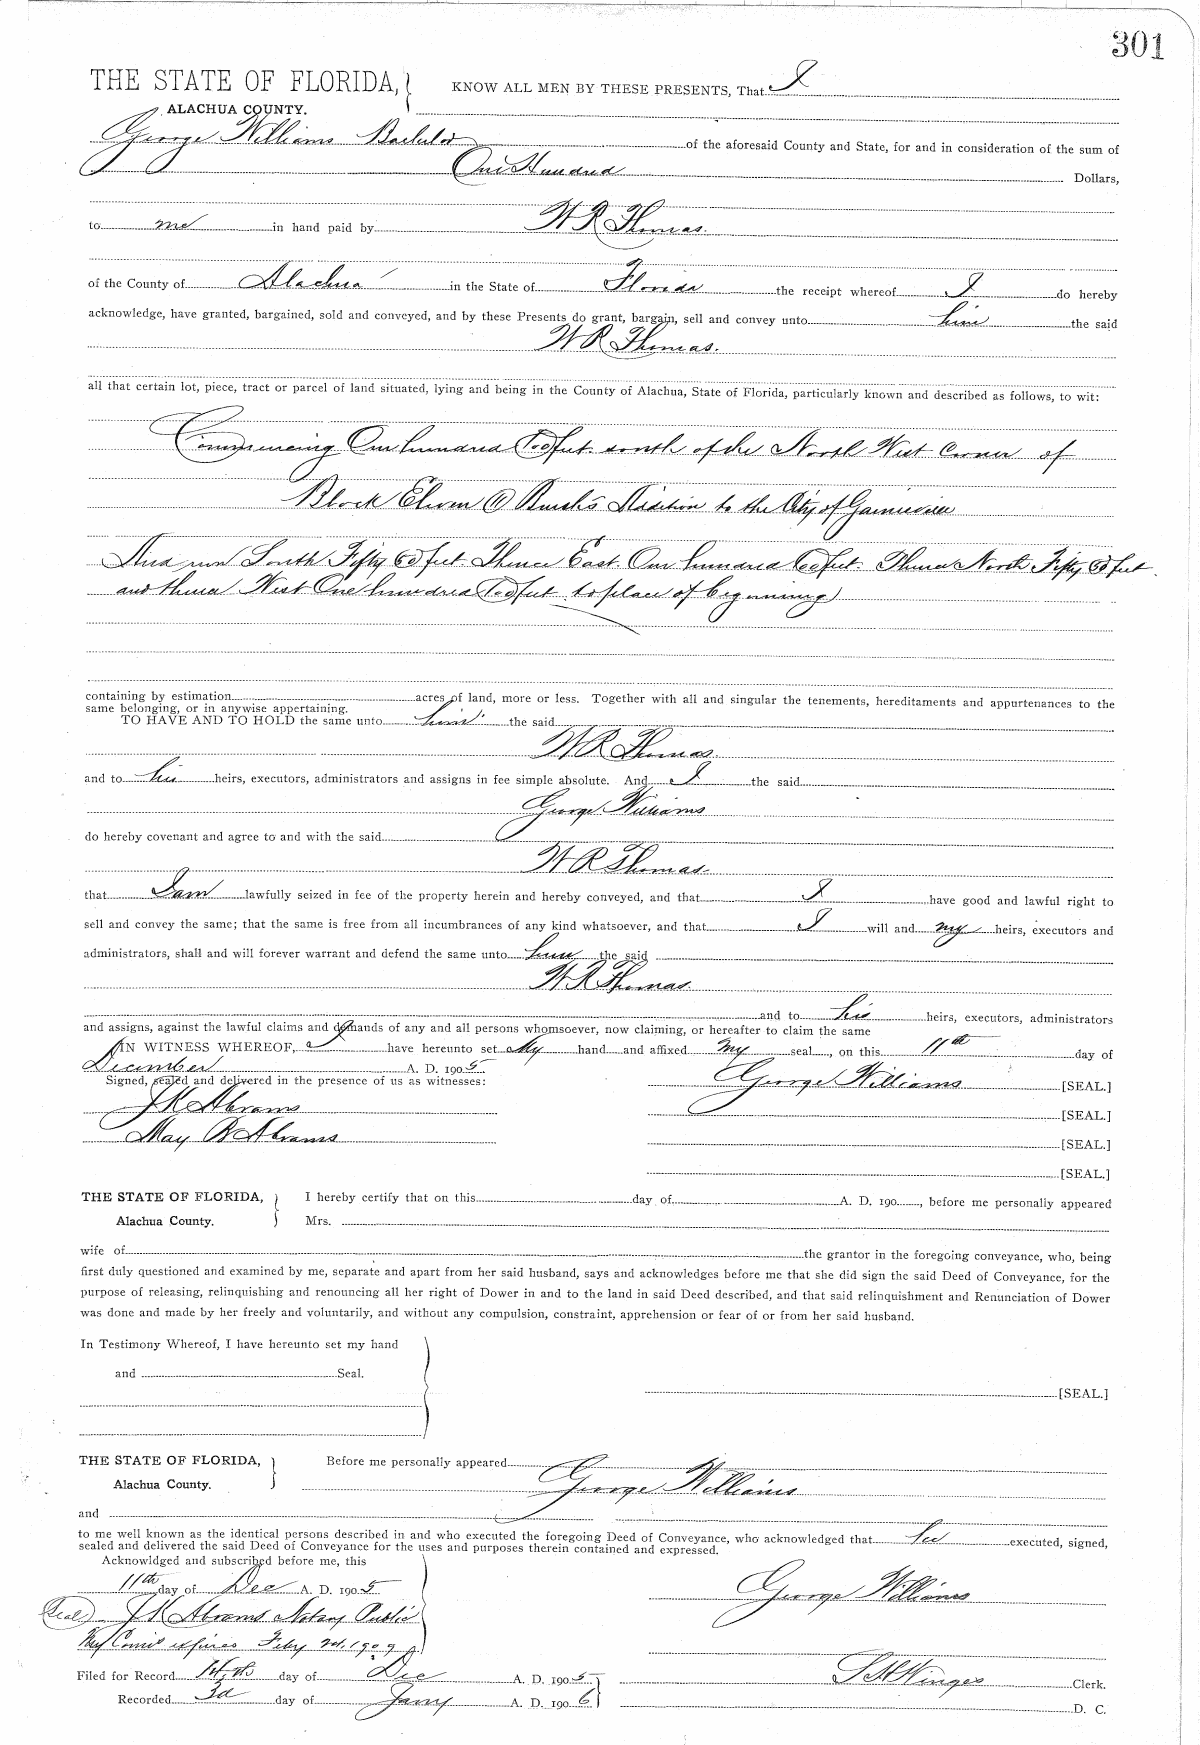 301
THE STATE OF FLORIDA, KNOW ALL MEN BY THESE PRESENTS, That I
ALACHUA COUNTY.
George Williams Bachelor of the aforesaid County and State, for and in consideration of the sum of
One Hundred Dollars,
to me in hand paid by W R Thomas.
of the County of Alachua in the State of Florida the receipt whereof I do hereby
acknowledge, have granted, bargained, sold and conveyed, and by these Presents do grant, bargain, sell and convey unto him the said
W R Thomas.
all that certain lot, piece, tract or parcel of land situated, lying and being in the County of Alachua, State of Florida, particularly known and described as follows, to wit:
Commencing One hundred (100) feet south of the North West Corner of
Block Eleven (11) Bush's Addition to the City of Gainesville
And run South Fifty (50) feet Thence East One hundred (100) feet. Thence North Fifty (50) feet
and thence West One hundred (100) feet to place of beginning)
containing by estimation acres of land, more or less. Together with all and singular the tenements, hereditaments and appurtenances to the
same belonging, or in anywise appertaining.
TO HAVE AND TO HOLD the same unto him the said
W R Thomas
and to his heirs, executors, administrators and assigns in fee simple absolute. And I the said
George Williams
do hereby covenant and agree to and with the said
W R Thomas.
that I am lawfully seized in fee of the property herein and hereby conveyed, and that I have good and lawful right to
sell and convey the same; that the same is free from all incumbrances of any kind whatsoever, and that I will and my heirs, executors and
administrators, shall and will forever warrant and defend the same unto him the said
W R Thomas.
and to his heirs, executors, administrators
and assigns, against the lawful claims and demands of any and all persons whomsoever, now claiming, or hereafter to claim the same
IN WITNESS WHEREOF, I have hereunto set My hand and affixed my seal, on this 11th day of
December A. D. 1905
Signed, sealed and delivered in the presence of us as witnesses: George Williams [SEAL.]
J K Abrams [SEAL.]
May B Abrams [SEAL.]
[SEAL.]
THE STATE OF FLORIDA, I hereby certify that on this day of A. D. 190, before me personally appeared
Alachua County. Mrs.
wife of the grantor in the foregoing conveyance, who, being
first duly questioned and examined by me, separate and apart from her said husband, says and acknowledges before me that she did sign the said Deed of Conveyance, for the
purpose of releasing, relinquishing and renouncing all her right of Dower in and to the land in said Deed described, and that said relinquishment and Renunciation of Dower
was done and made by her freely and voluntarily, and without any compulsion, constraint, apprehension or fear of or from her said husband.
In Testimony Whereof, I have hereunto set my hand
and Seal.
[SEAL.]
THE STATE OF FLORIDA, Before me personally appeared
Alachua County. George Williams
and
to me well known as the identical persons described in and who executed the foregoing Deed of Conveyance, who acknowledged that he executed, signed,
sealed and delivered the said Deed of Conveyance for the uses and purposes therein contained and expressed.
Acknowldged and subscribed before me, this
11th day of Dec A. D. 1905 George Williams
(Seal) J K Abrams Notary Public
My Comis expires Feby 1909
Filed for Record 14th day of Dec A. D. 1905 S H Wienges Clerk.
Recorded 3d day of Jany A. D. 1906 D. C.